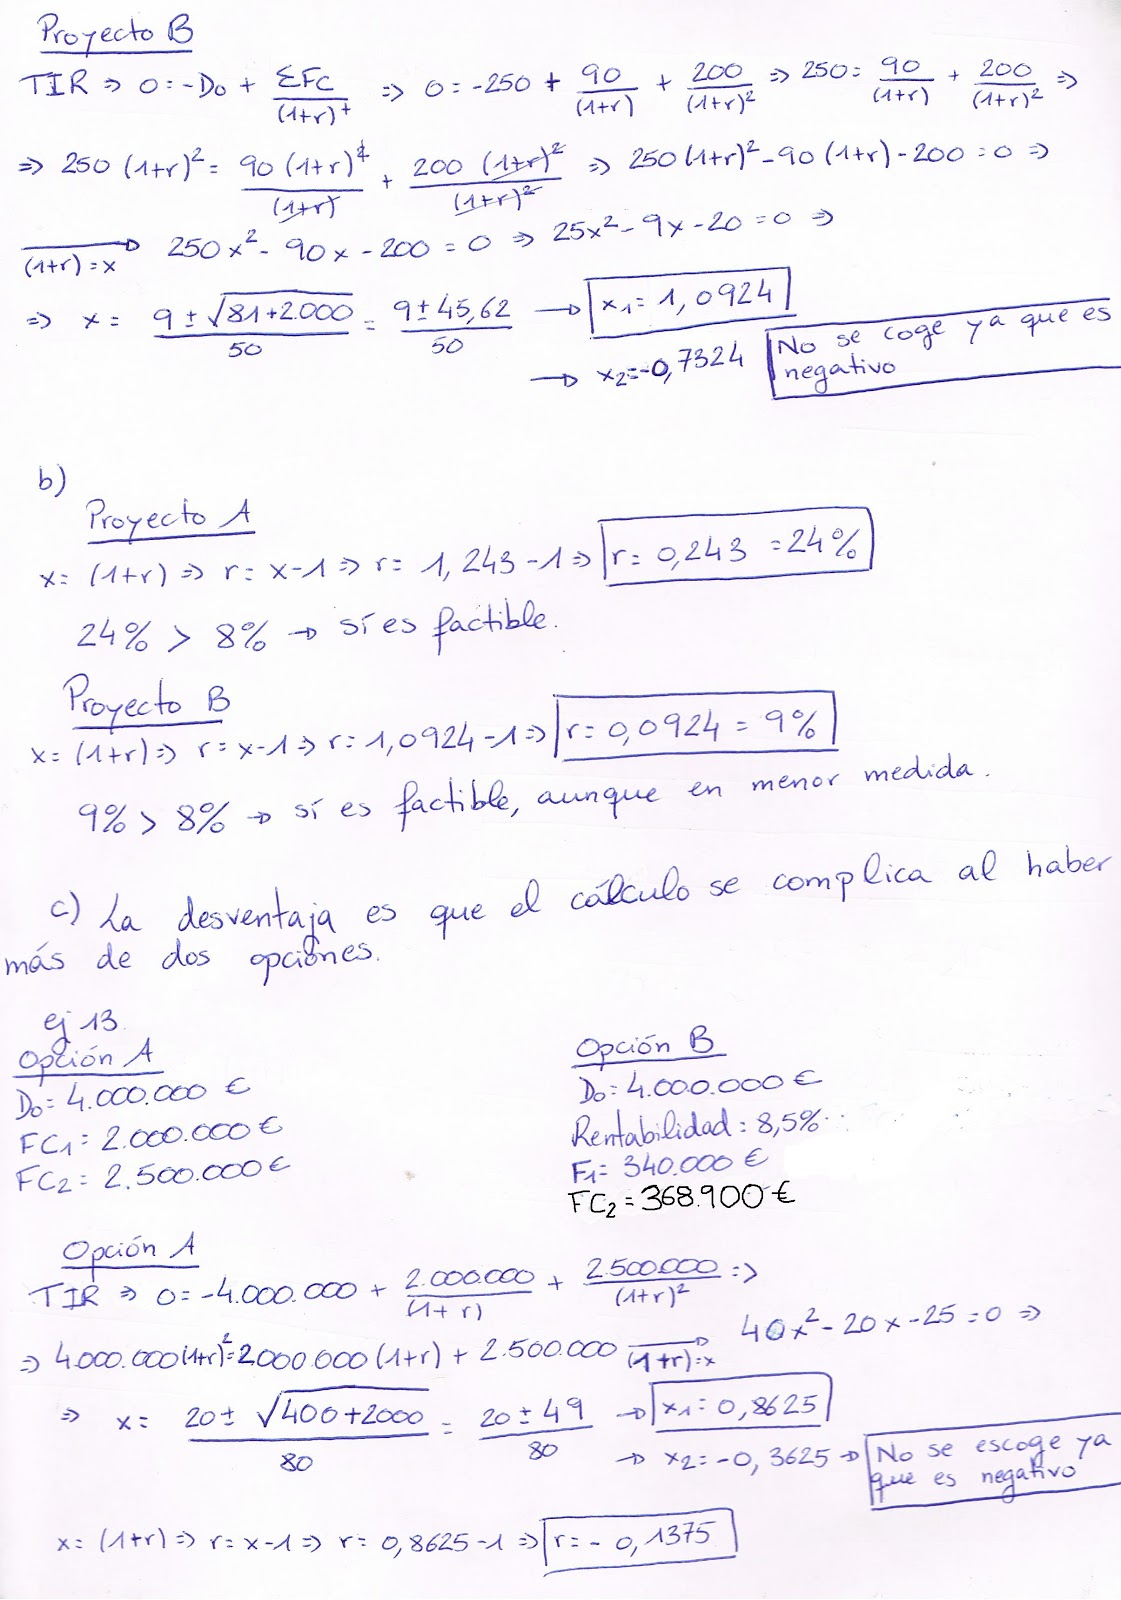 Proyecto B
TIR ⇒ 0 = -D0 + ΣFc/(1+r)^t ⇒ 0 = -250 + 90/(1+r) + 200/(1+r)² ⇒ 250 = 90/(1+r) + 200/(1+r)² ⇒
⇒ 250 (1+r)² = 90 (1+r)^2/(1+r) + 200 (1+r)²/(1+r)² ⇒ 250 (1+r)² - 90 (1+r) - 200 = 0 ⇒
(1+r) = x → 250x² - 90x - 200 = 0 ⇒ 25x² - 9x - 20 = 0 ⇒
⇒ x = (9 ± √(81+2.000))/50 = (9 ± 45,62)/50 → x1 = 1,0924
→ x2 = -0,7324 No se coge ya que es
negativo
b)
Proyecto A
x = (1+r) ⇒ r = x-1 ⇒ r = 1,243 - 1 ⇒ r = 0,243 = 24%
24% > 8% → sí es factible.
Proyecto B
x = (1+r) ⇒ r = x-1 ⇒ r = 1,0924 - 1 ⇒ r = 0,0924 = 9%
9% > 8% → sí es factible, aunque en menor medida.
c) La desventaja es que el cálculo se complica al haber
más de dos opciones.
ej 13
Opción A
D0 = 4.000.000 €
FC1 = 2.000.000 €
FC2 = 2.500.000 €
Opción B
D0 = 4.000.000 €
Rentabilidad: 8,5%
F1 = 340.000 €
FC2 = 368.900 €
Opción A
TIR ⇒ 0 = -4.000.000 + 2.000.000/(1+r) + 2.500.000/(1+r)² ⇒
⇒ 4.000.000 (1+r)² = 2.000.000 (1+r) + 2.500.000 (1+r) = x → 40x² - 20x - 25 = 0 ⇒
⇒ x = (20 ± √(400+2000))/80 = (20 ± 49)/80 → x1 = 0,8625
→ x2 = -0,3625 → No se escoge ya
que es negativo
x = (1+r) ⇒ r = x-1 ⇒ r = 0,8625 - 1 ⇒ r = -0,1375